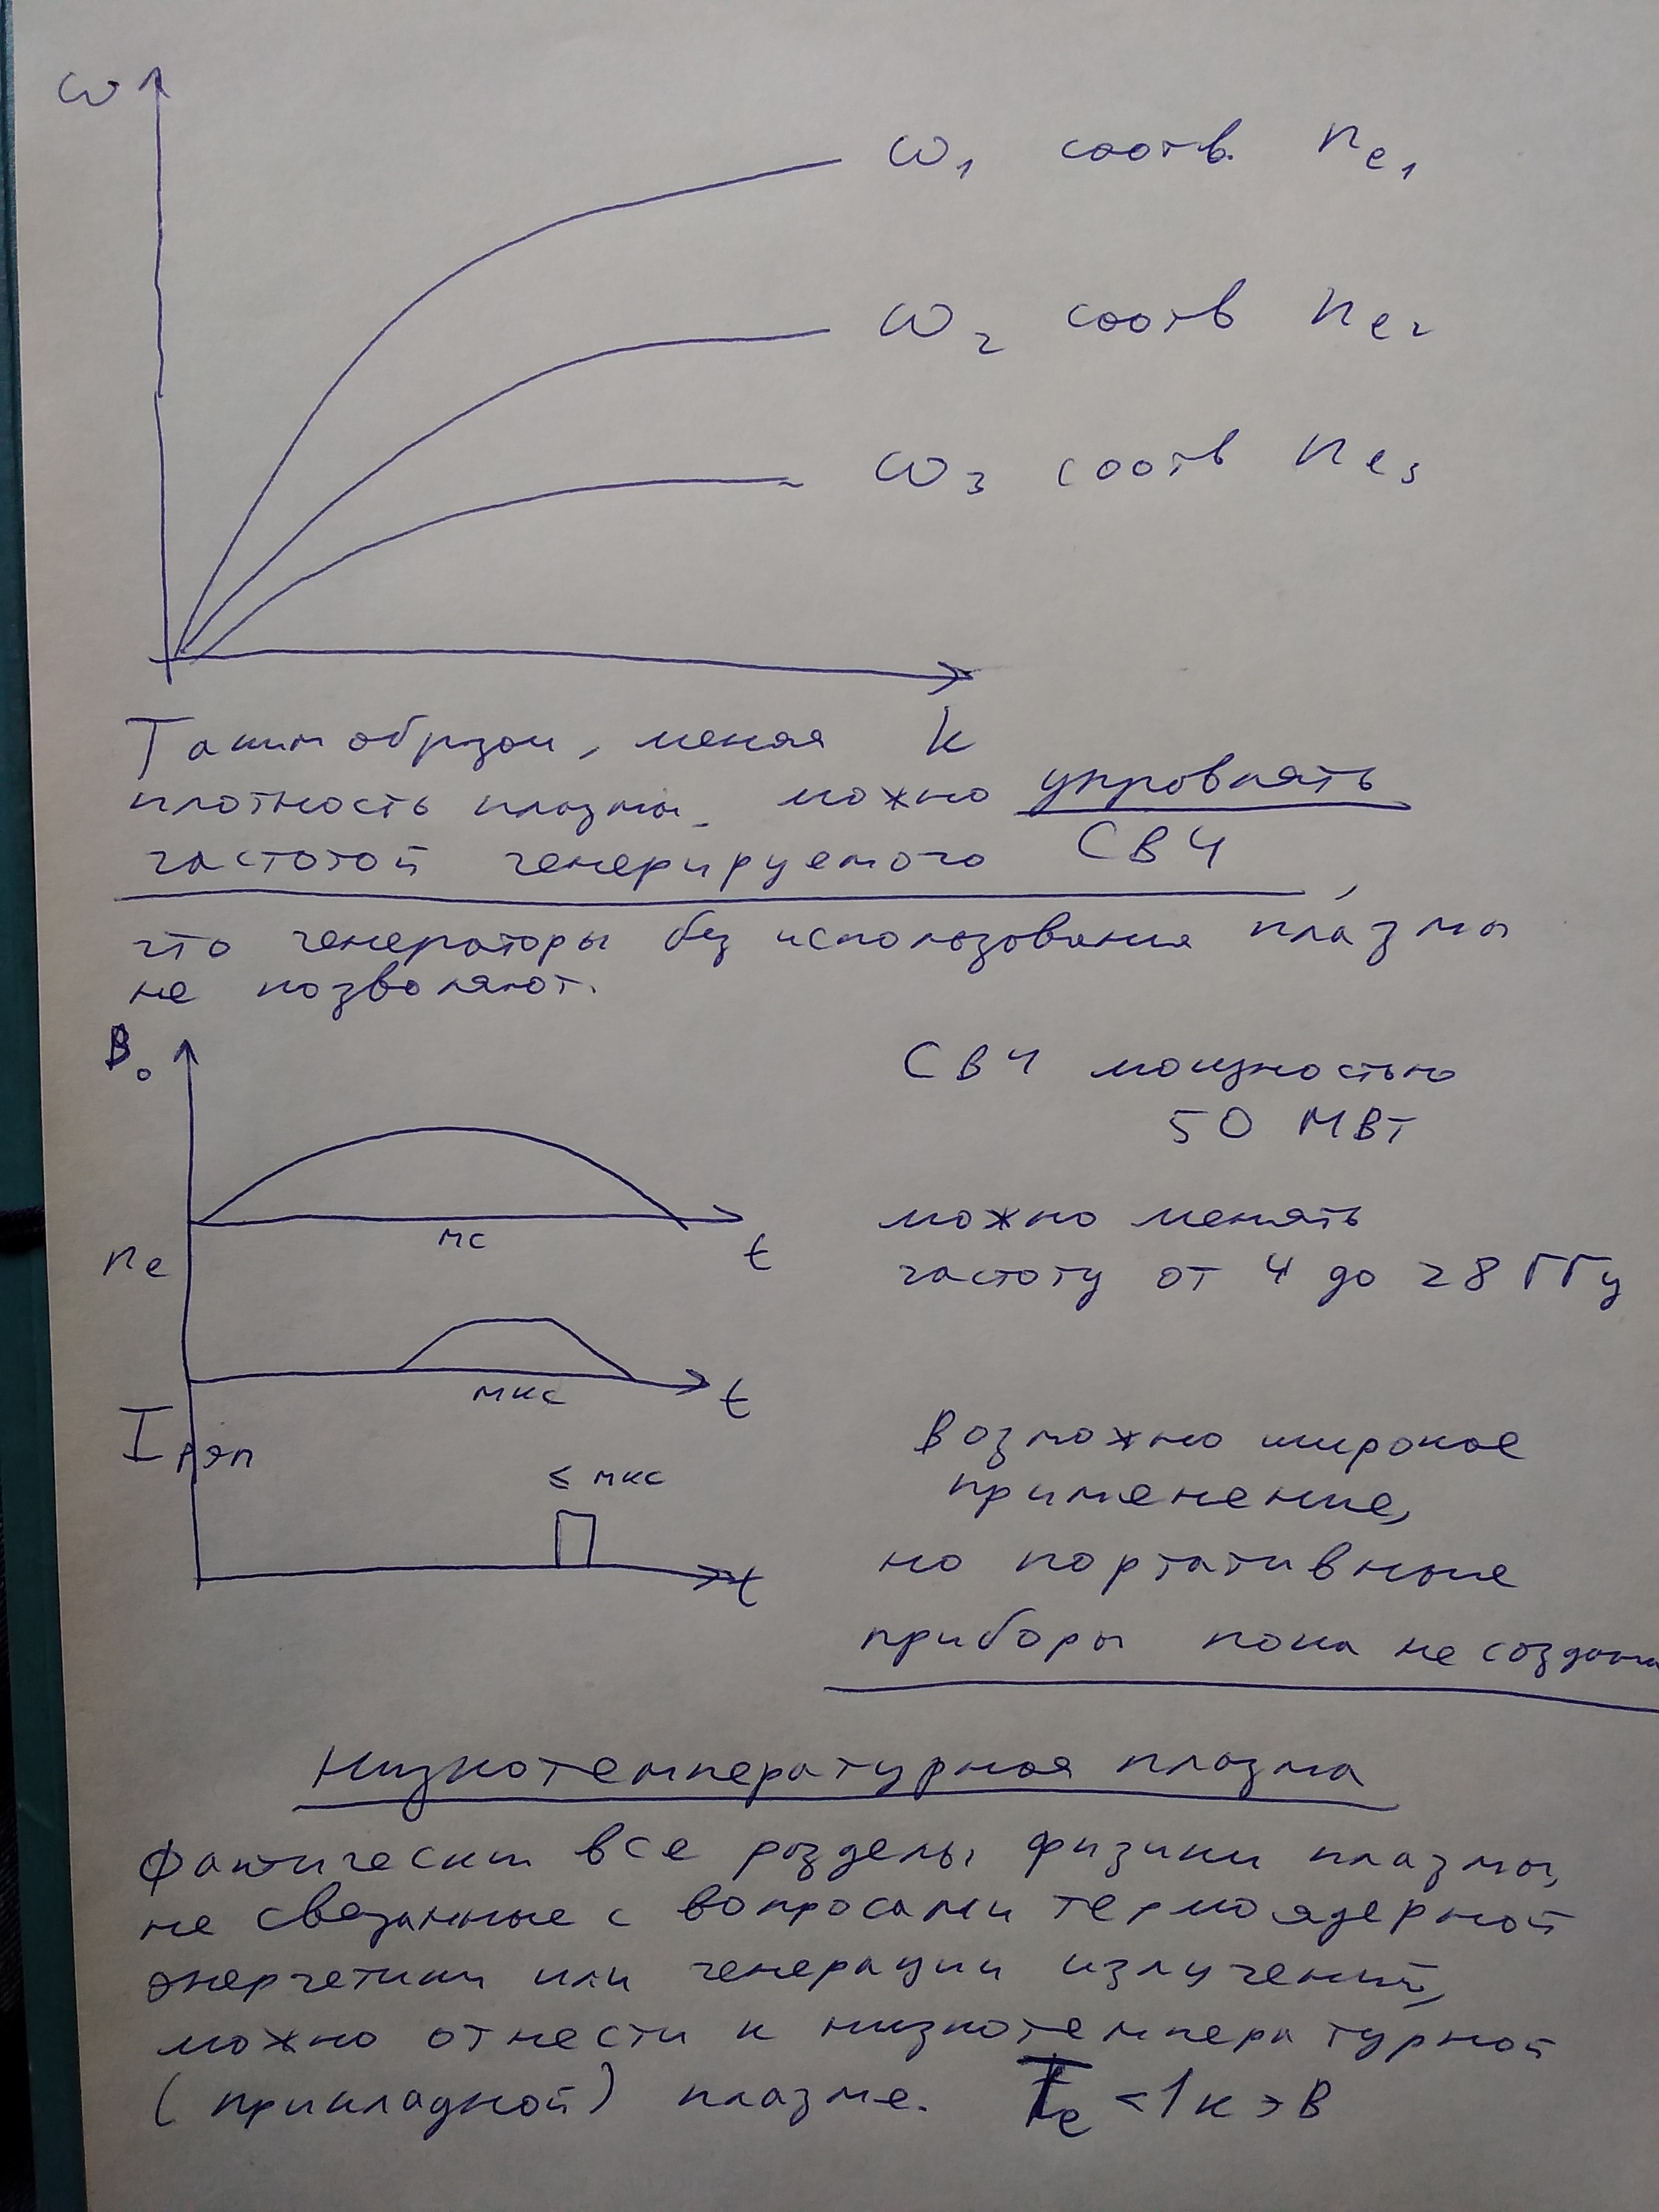 ω
ω₁ соотв. nₑ₁
ω₂ соотв nₑ₂
ω₃ соотв nₑ₃
k
Таким обрзом, меняя
плотность плазмы можно управлять
частотой генерируемого СВЧ,
что генераторы без использования плазмы
не позволяют.
B₀
СВЧ мощностью
50 МВт
мс
t
можно менять
частоту от 4 до 28 ГГц
nₑ
мкс
t
Iрэп
≤ мкс
t
Возможно широкое
применение,
но портативные
приборы пока не созданы
Низкотемпературная плазма
Фактически все разделы физики плазмы,
не связанные с вопросами термоядерной
энергетики или генерации излучений,
можно отнести к низкотемпературной
(прикладной) плазме. Tₑ <1кэВ